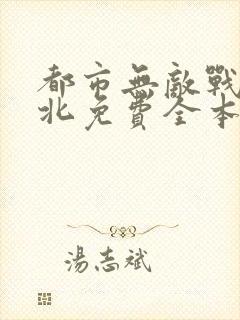 都市無敵戰
北免費全本
湯志斌